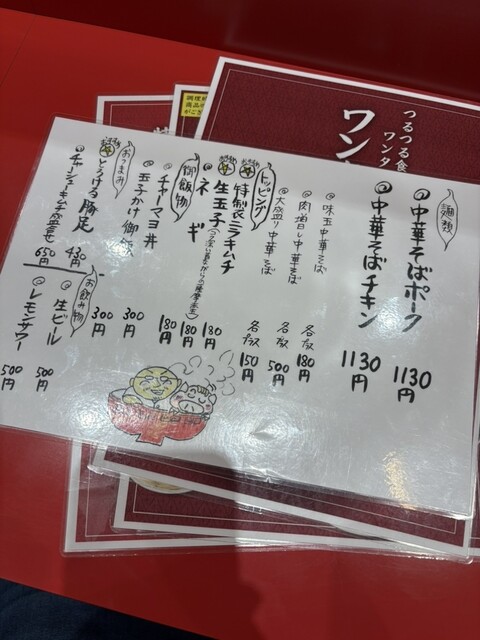 つるつる食
ワンタ
ワン
麺類
◎中華そばポーク 1130円
◎中華そばチキン 1130円
◎味玉中華そば 各プラス 180円
◎肉増し中華そば 各プラス 500円
◎大盛り中華そば 各プラス 150円
トッピング
特製ニラキムチ 180円
生玉子 180円
ネギ 180円
御飯物
◎チャーマヨ丼 300円
◎玉子かけ御飯 300円
おつまみ
とろける豚足 430円
◎チャーシューキムチ盛合せ 650円
お飲み物
◎生ビール 500円
◎レモンサワー 500円